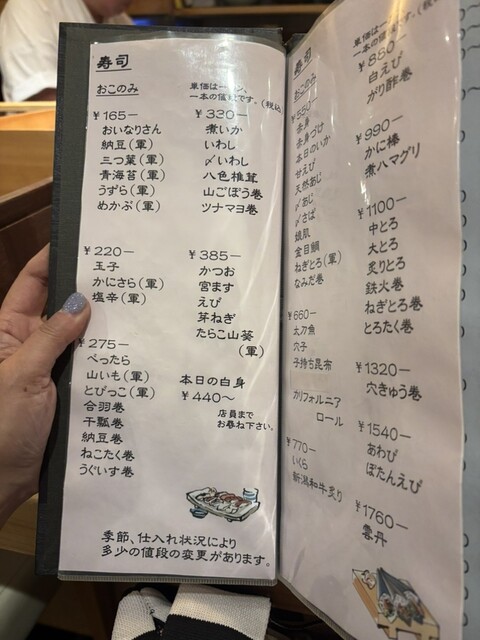 寿司
おこのみ
単価は一
一本の値段です。(税込)
¥165―
おいなりさん
納豆(軍)
三つ葉(軍)
青海苔(軍)
うずら(軍)
めかぶ(軍)
¥220―
玉子
かにさら(軍)
塩辛(軍)
¥275―
べったら
山いも(軍)
とびっこ(軍)
合羽巻
干瓢巻
納豆巻
ねこたく巻
うぐいす巻
¥330―
煮いか
いわし
〆いわし
八色椎茸
山ごぼう巻
ツナマヨ巻
¥385―
かつお
宮ます
えび
芽ねぎ
たらこ山葵
(軍)
本日の白身
¥440〜
店員まで
お尋ね下さい。
季節、仕入れ状況により
多少の値段の変更があります。
寿司
おこのみ
単価は一
一本の値段です。(税
¥550―
赤身
赤身づけ
本日のいか
甘えび
天然あじ
〆あじ
〆さば
焼肌
金目鯛
ねぎとろ(軍)
なみだ巻
¥660―
太刀魚
穴子
子持ち昆布
カリフォルニア
ロール
¥770―
いくら
新潟和牛炙り
¥880―
白えび
がり酢巻
¥990―
かに棒
煮ハマグリ
¥1100―
中とろ
大とろ
炙りとろ
鉄火巻
ねぎとろ巻
とろたく巻
¥1320―
穴きゅう巻
¥1540―
あわび
ぼたんえび
¥1760―
雲丹